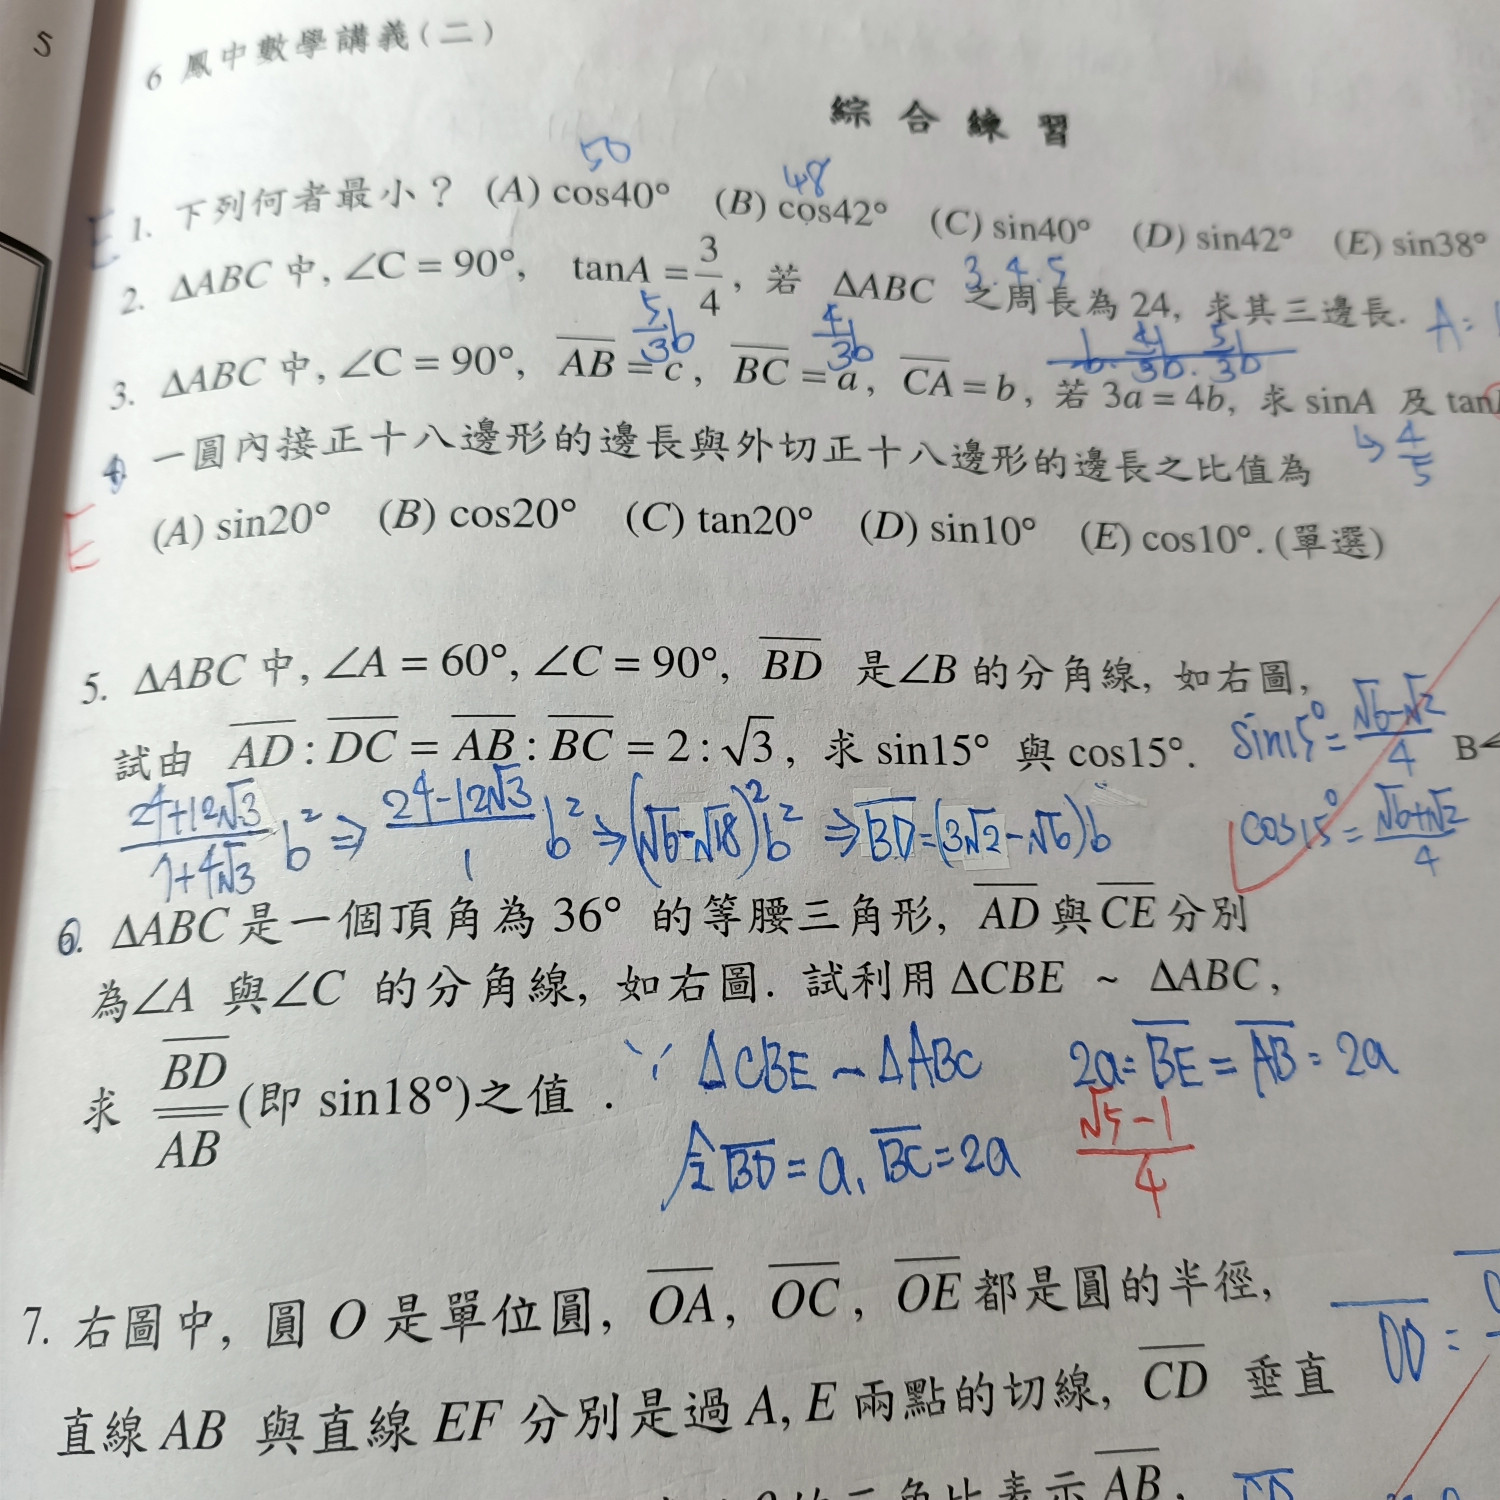 5
6 鳳中數學講義(二)
綜合練習
50 48
E 1. 下列何者最小？ (A) cos40° (B) cos42° (C) sin40° (D) sin42° (E) sin38°
2. ΔABC 中, ∠C = 90°, tanA = 3/4, 若 ΔABC 之周長為 24, 求其三邊長.
3. 4. 5 A:
5/3b 4/3b b. 4/3b. 5/3b
3. ΔABC 中, ∠C = 90°, AB = c, BC = a, CA = b, 若 3a = 4b, 求 sinA 及 tan
↳ 4/5
4. 一圓內接正十八邊形的邊長與外切正十八邊形的邊長之比值為
E (A) sin20° (B) cos20° (C) tan20° (D) sin10° (E) cos10°. (單選)
5. ΔABC 中, ∠A = 60°, ∠C = 90°, BD 是∠B 的分角線, 如右圖,
試由 AD : DC = AB : BC = 2 : √3, 求 sin15° 與 cos15°.
sin15° = (√6-√2)/4 B
(24+12√3)/(7+4√3) b² ⇒ (24-12√3)/1 b² ⇒ (√6-√18)²b² ⇒ BD=(3√2-√6)b
cos15° = (√6+√2)/4
6. ΔABC 是一個頂角為 36° 的等腰三角形, AD 與 CE 分別
為∠A 與∠C 的分角線, 如右圖. 試利用 ΔCBE ~ ΔABC,
求 BD/AB (即 sin18°)之值.
∵ ΔCBE ~ ΔABC 2a=BE=AB=2a
令BD=a, BC=2a (√5-1)/4
7. 右圖中, 圓 O 是單位圓, OA, OC, OE 都是圓的半徑,
直線 AB 與直線 EF 分別是過 A, E 兩點的切線, CD 垂直
AB,